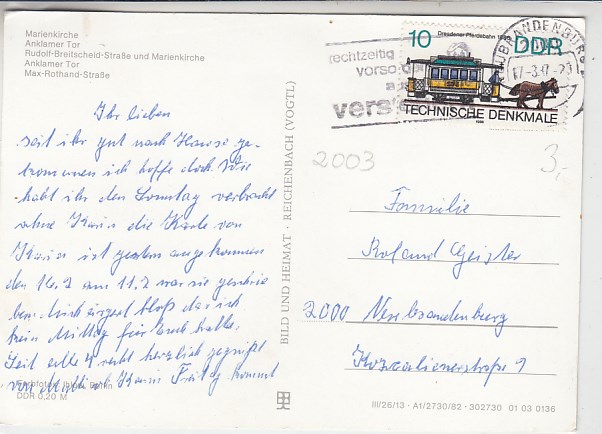 Marienkirche
Anklamer Tor
Rudolf-Breitscheid-Straße und Marienkirche
Anklamer Tor
Max-Rothand-Straße
Ihr lieben
seit ihr gut nach Hause ge-
kommen ich hoffe doch. Wie
habt ihr den Sonntag verbracht
ohne Karin die Karte von
Karin ist gestern angekommen
den 16.2 am 11.2 war sie geschrie
ben. Mich ärgert bloß das ich
kein Mittag für Euch hatte.
Seit alle recht herzlich gegrüßt
von Karin Freitag kommt
Berlin
DDR 0,20 M
BILD UND HEIMAT · REICHENBACH (VOGTL)
rechtzeitig
vorso
verst
10 Dresdener Pferdebahn DDR
TECHNISCHE DENKMALE
1986
BRANDENBURG
2003
3,-
Familie
Roland Geister
2000 Neubrandenburg
9
III/26/13 · A1/2730/82 · 302730 01 03 0136